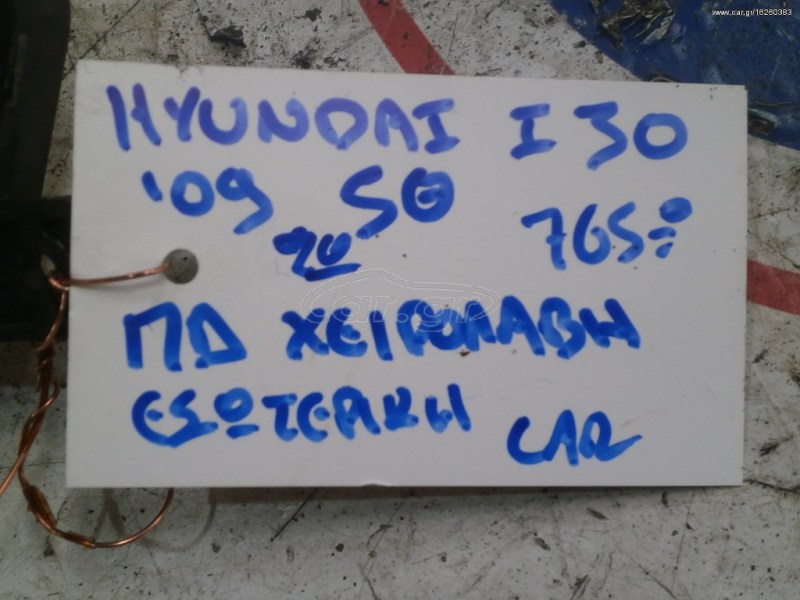 www.car.gr/16260383
HYUNDAI I30
'09 5Θ
20 765
ΠΔ ΧΕΙΡΟΛΑΒΗ
ΕΣΩΤΕΡΙΚΗ CAR
car.gr